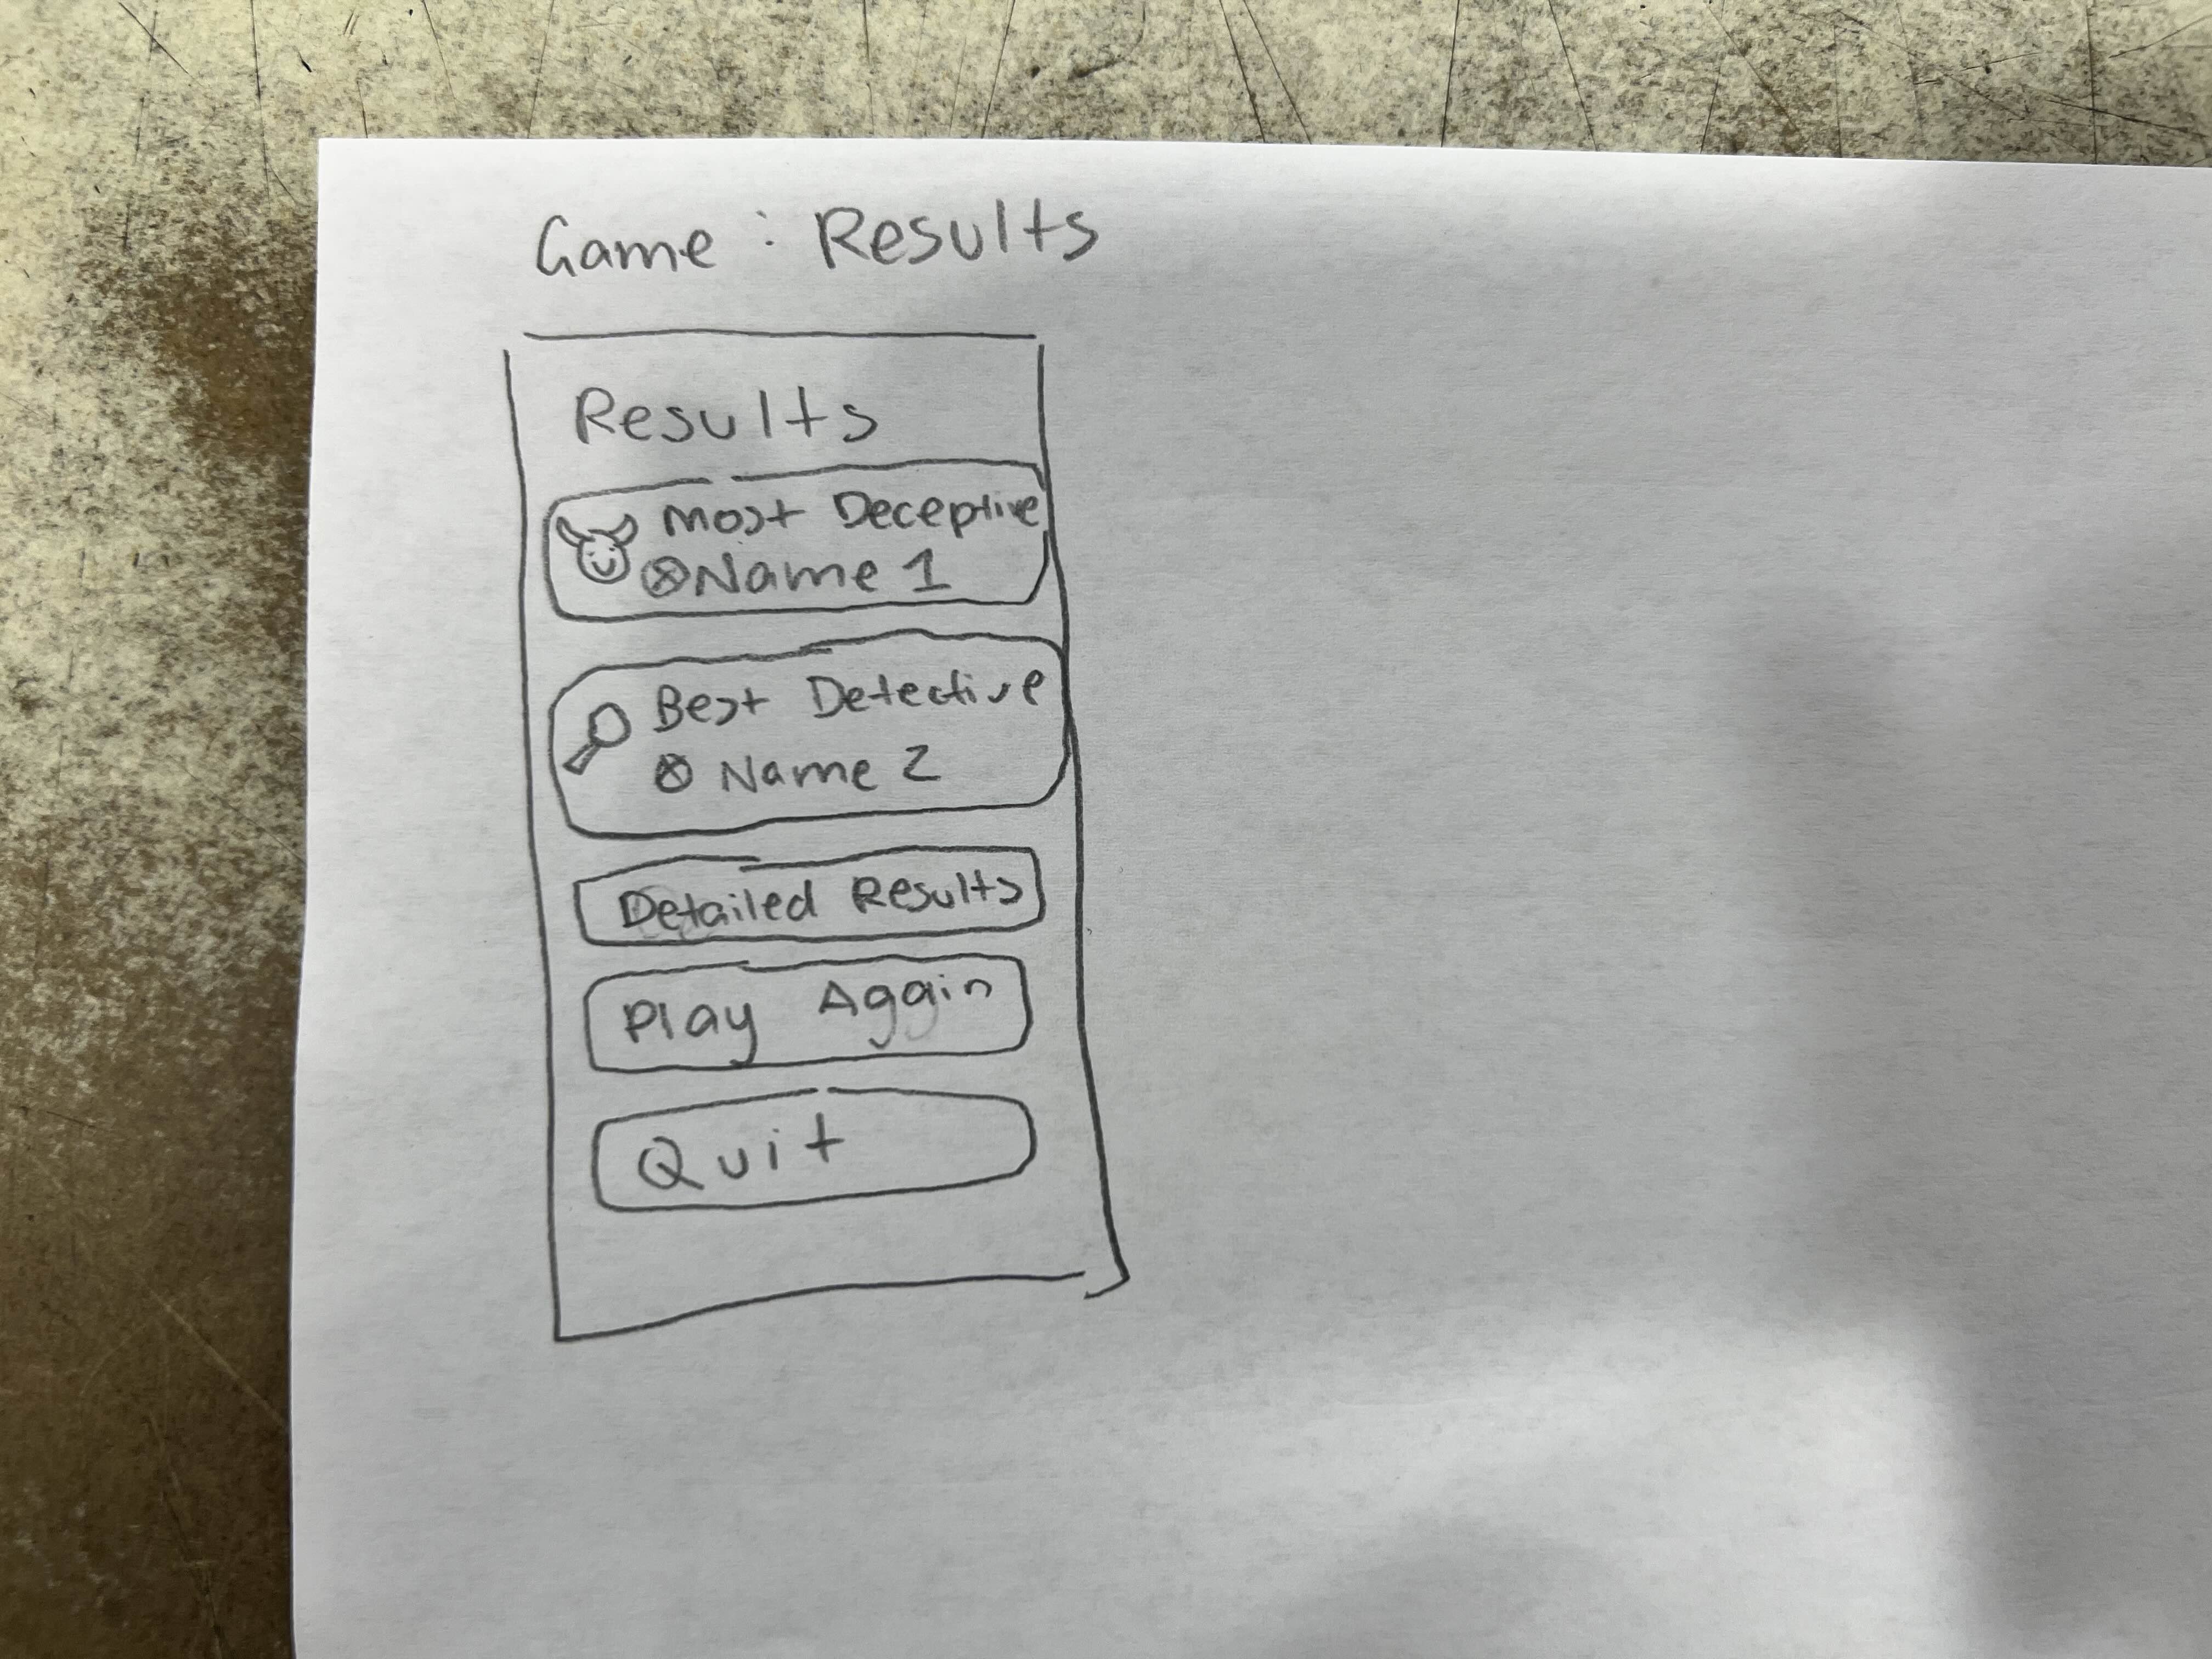 Game : Results
Results
Most Deceptive
Name 1
Best Detective
Name 2
Detailed Results
Play Again
Quit